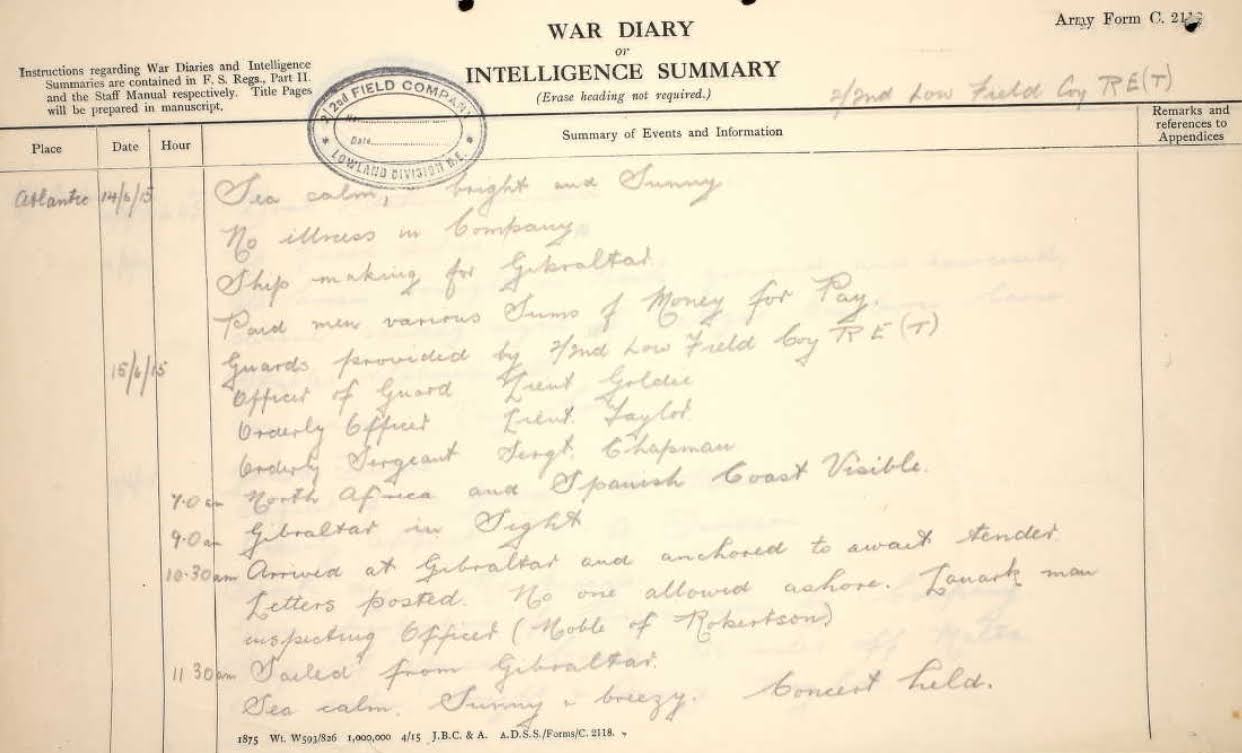 WAR DIARY
or
INTELLIGENCE SUMMARY
(Erase heading not required.)
Army Form C. 2118
Instructions regarding War Diaries and Intelligence
Summaries are contained in F. S. Regs., Part II.
and the Staff Manual respectively. Title Pages
will be prepared in manuscript.
2/2nd FIELD COMPANY
Date
LOWLAND DIVISION R.E.
2/2nd Low Field Coy RE(T)
Place
Date
Hour
Summary of Events and Information
Remarks and
references to
Appendices
Atlantic 14/6/15 Sea calm, bright and Sunny
No illness in Company
Ship making for Gibraltar.
Paid men various Sums of Money for Pay.
15/6/15 Guards provided by 2/2nd Low Field Coy RE(T)
Officer of Guard Lieut Goldie
Orderly Officer Lieut. Taylor
Orderly Sergeant Sergt. Chapman
7.0 am North Africa and Spanish Coast Visible.
9.0 am Gibraltar in Sight
10.30am Arrived at Gibraltar and anchored to await tender
Letters posted. No one allowed ashore. Lanark man
inspecting Officer (Noble of Robertson)
11 30am Sailed from Gibraltar.
Sea calm. Sunny & breezy. Concert held.
1875 Wt. W593/826 1,000,000 4/15 J.B.C. & A. A.D.S.S./Forms/C. 2118.